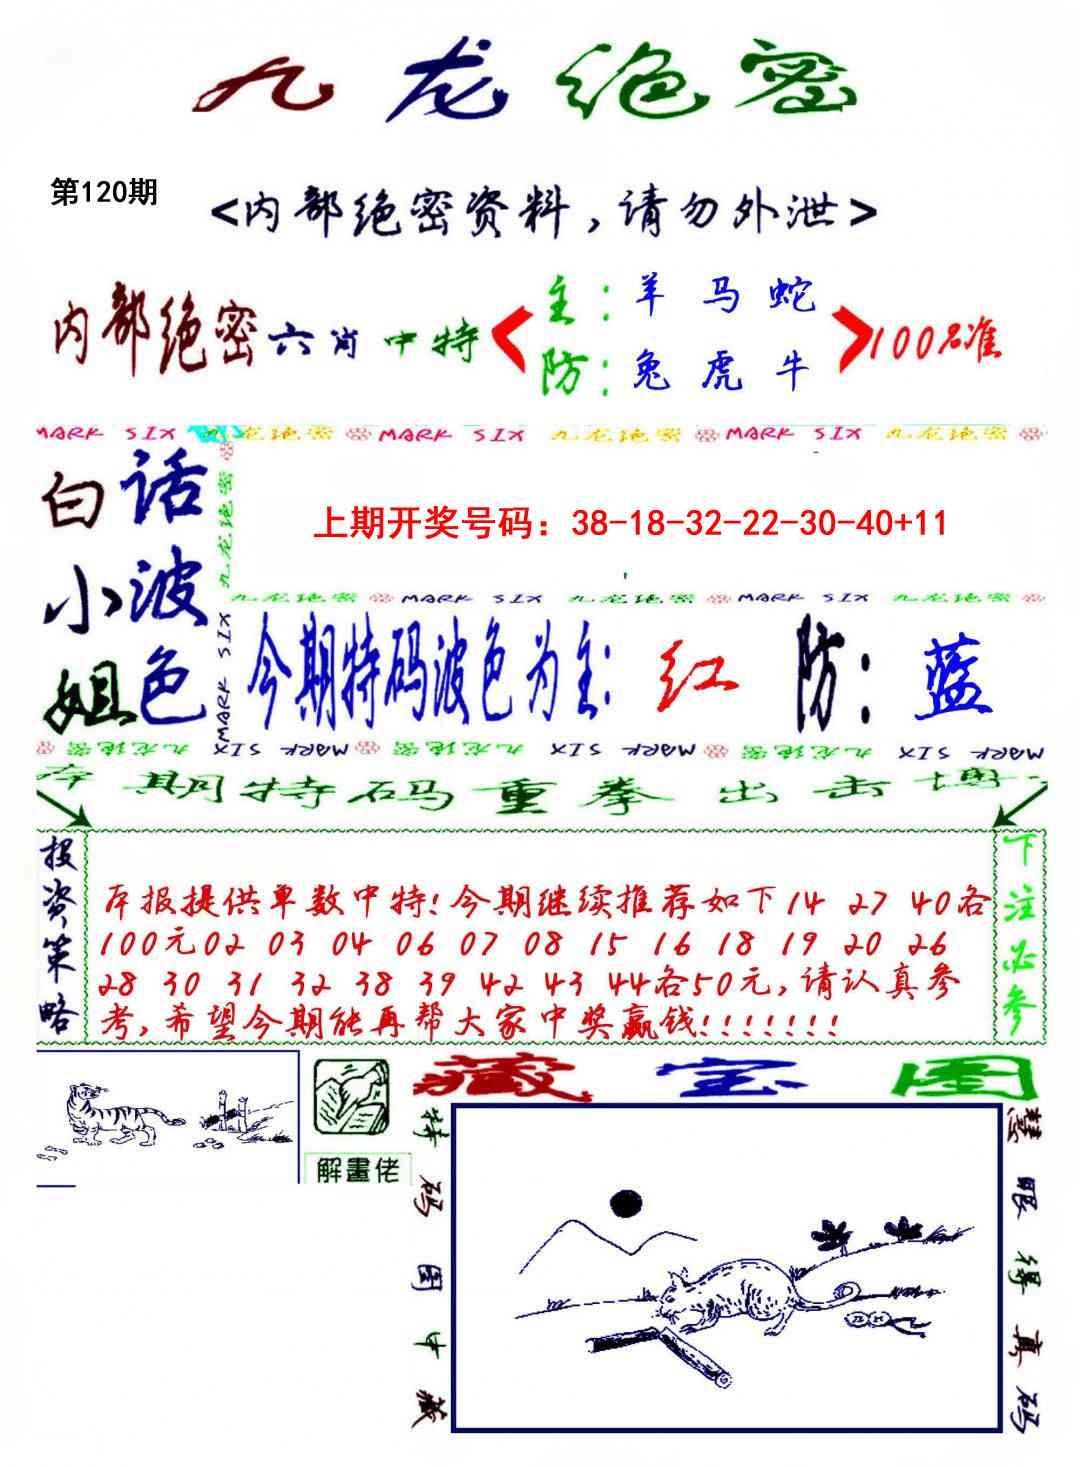 九龙绝密
第120期
<内部绝密资料,请勿外泄>
内部绝密六肖中特
主:羊 马 蛇
防:兔 虎 牛
100%准
MARK SIX 九龙绝密 MARK SIX 九龙绝密 MARK SIX 九龙绝密
白小姐
话波色
九龙绝密
MARK SIX
上期开奖号码：38-18-32-22-30-40+11
九龙绝密 MARK SIX 九龙绝密 MARK SIX 九龙绝密
今期特码波色为主:红 防:蓝
九龙绝密 MARK SIX 九龙绝密 MARK SIX 九龙绝密 MARK SIX
本期特码重拳出击博
投资策略
本报提供单数中特!今期继续推荐如下14 27 40各
100元02 03 04 06 07 08 15 16 18 19 20 26
28 30 31 32 38 39 42 43 44各50元,请认真参
考,希望今期能再帮大家中奖赢钱!!!!!!!
下注必参
解畫佬
藏宝图
特码图中藏
慧眼得真码